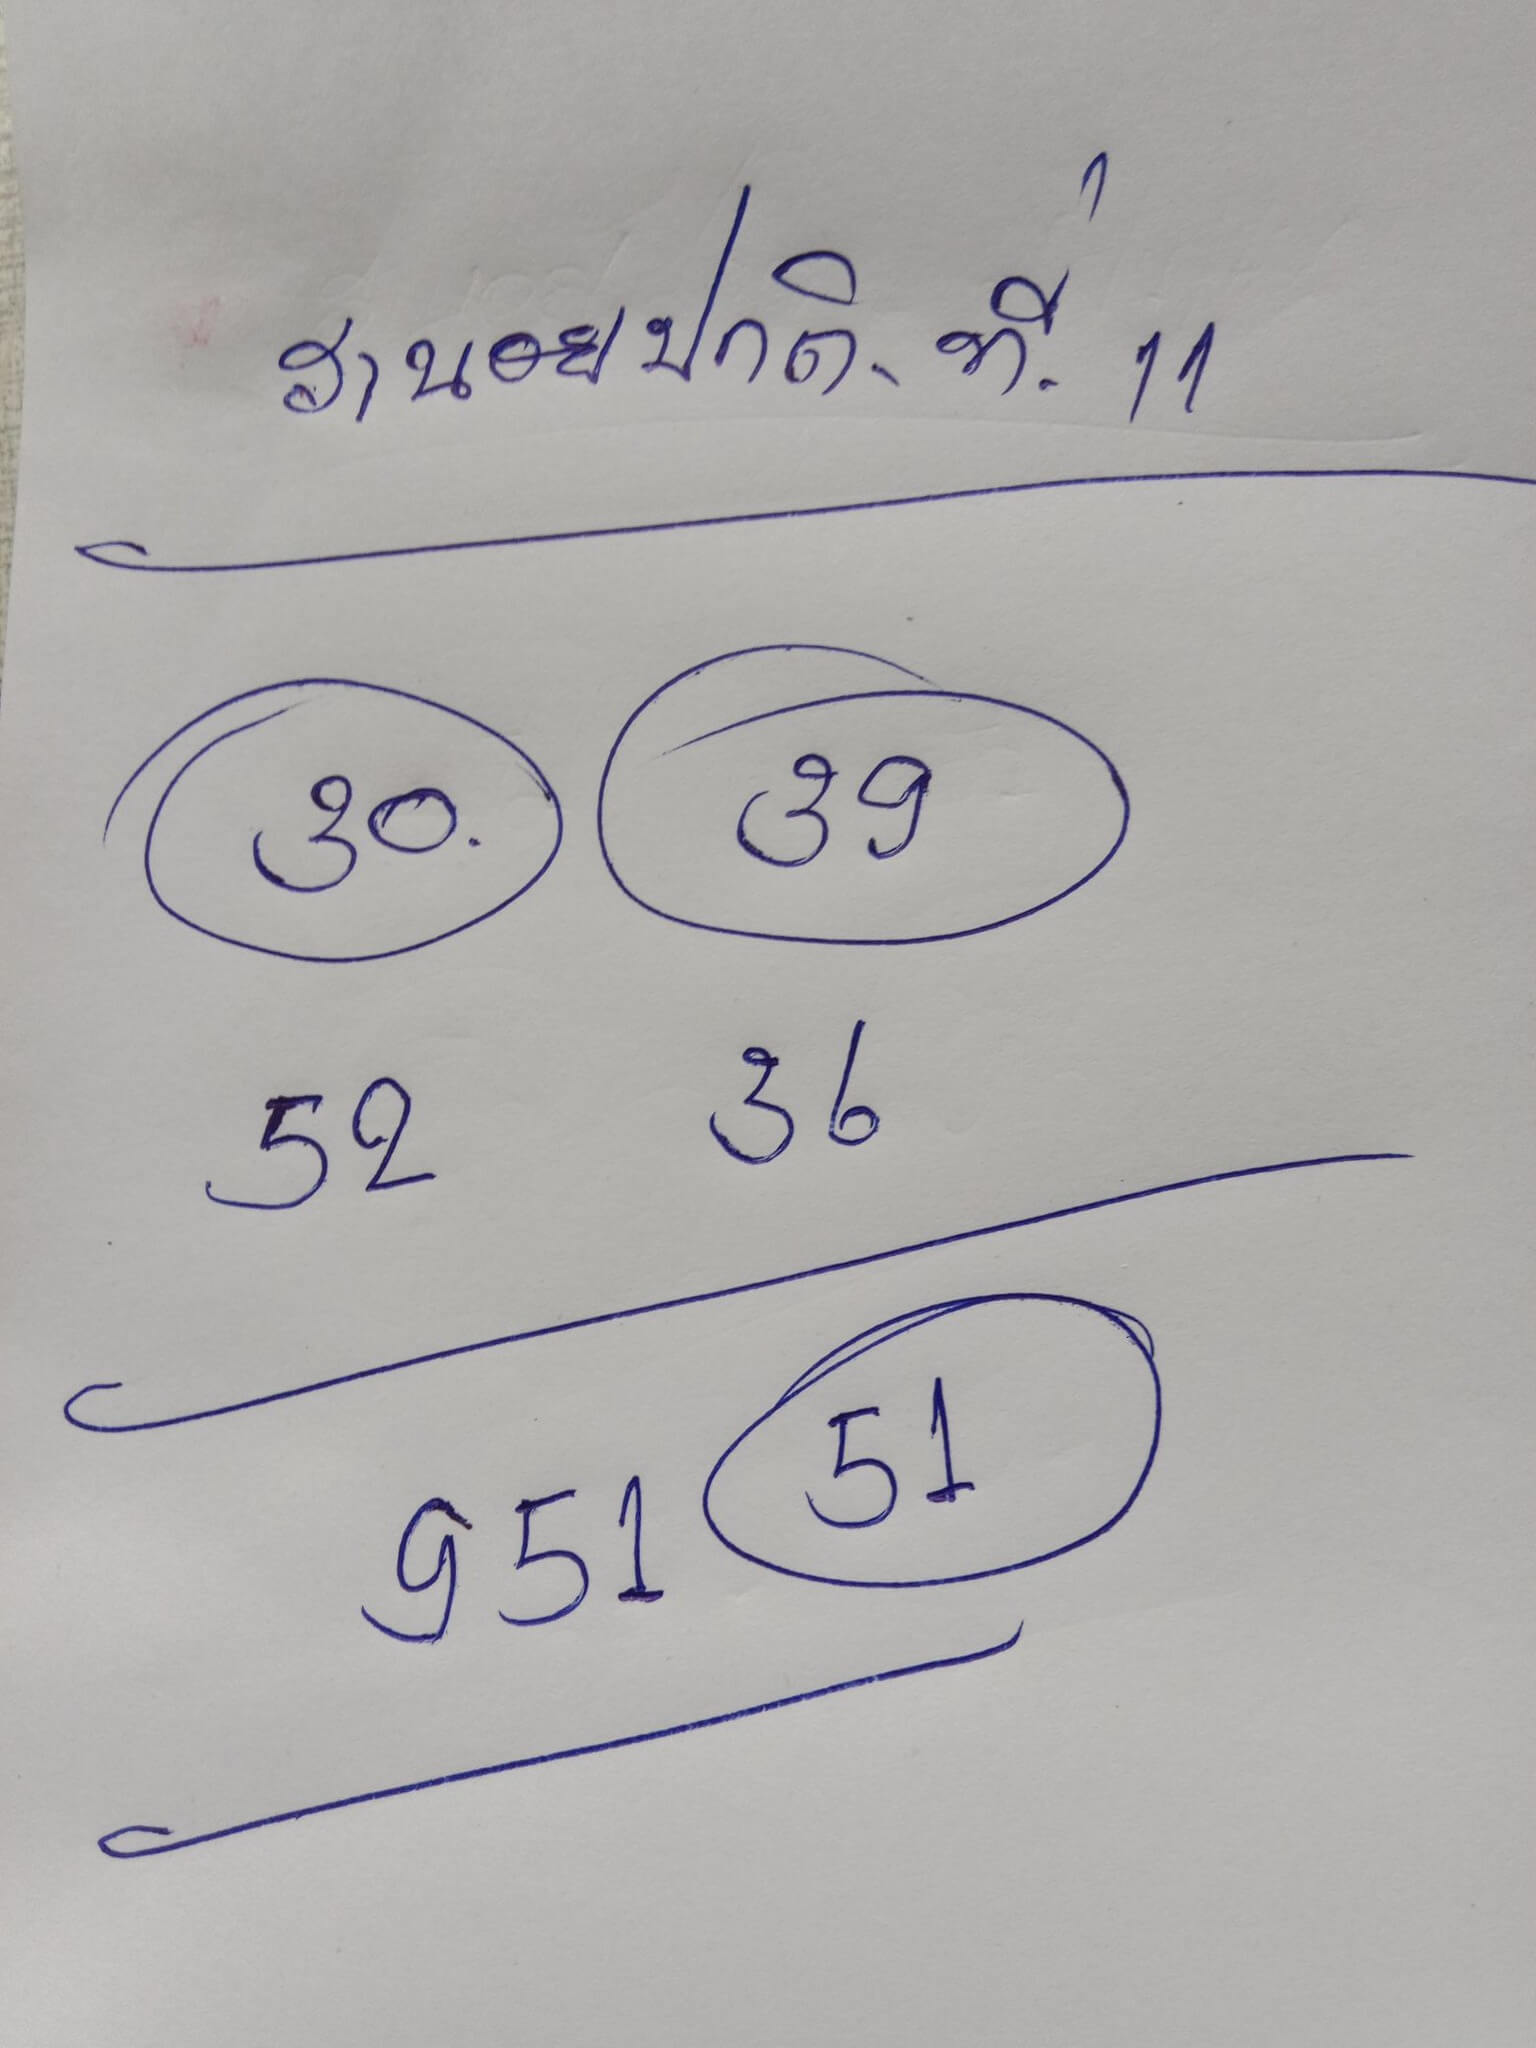 ฮานอยปกติ. ที่. 11
30. 39
52 36
951 51